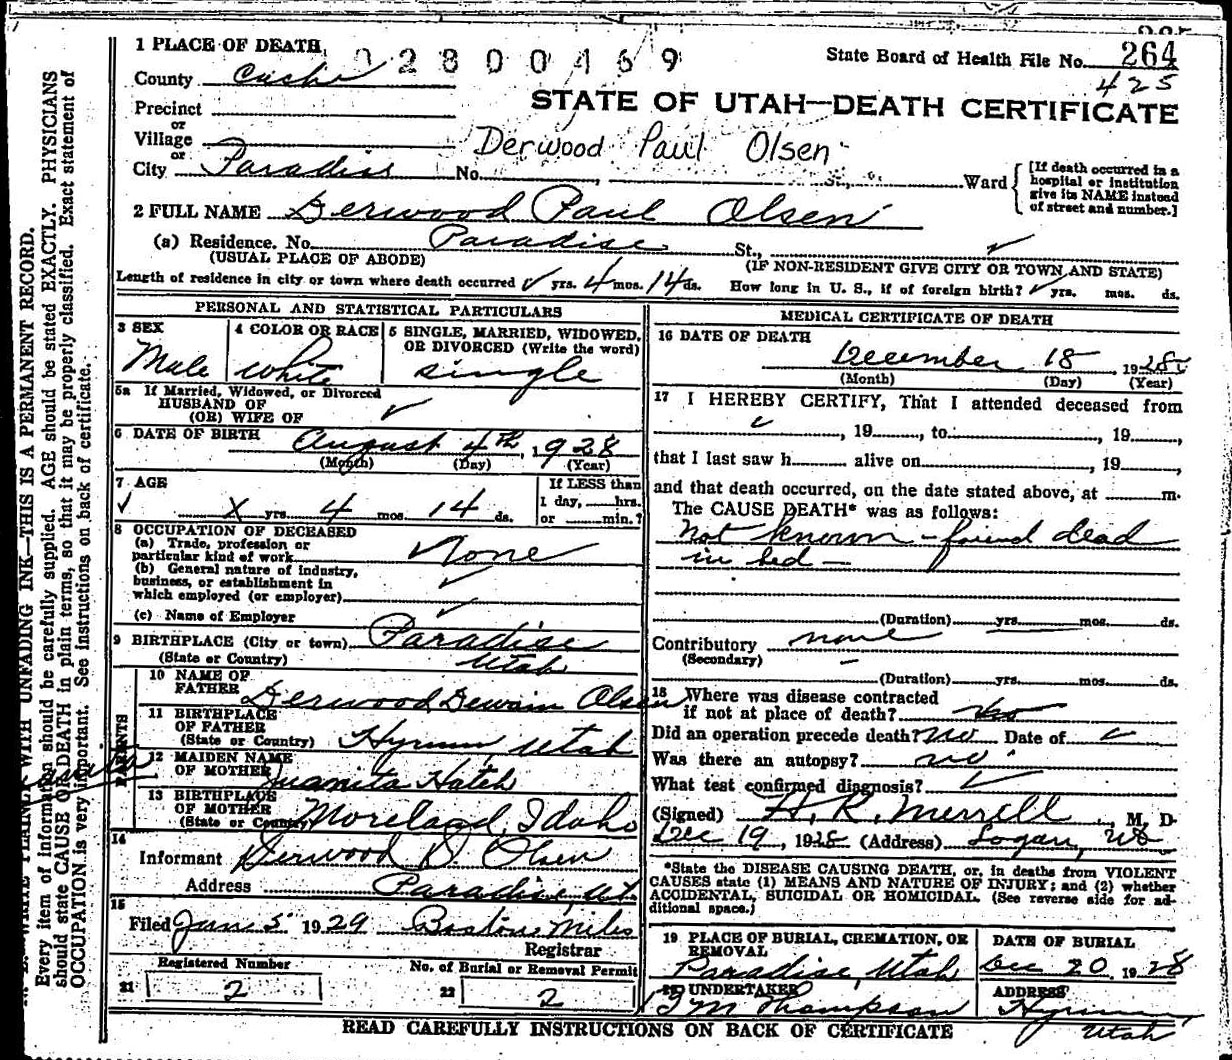 1 PLACE OF DEATH
02800469
State Board of Health File No. 264
425
County Cache
STATE OF UTAH—DEATH CERTIFICATE
Precinct
or
Village
Derwood Paul Olsen
or
City Paradise No. St., Ward
[If death occurred in a hospital or institution give its NAME instead of street and number.]
2 FULL NAME Derwood Paul Olsen
(a) Residence. No. Paradise St., ✓
(USUAL PLACE OF ABODE) (IF NON-RESIDENT GIVE CITY OR TOWN AND STATE)
Length of residence in city or town where death occurred ✓ yrs. 4 mos. 14 ds. How long in U. S., if of foreign birth? ✓ yrs. mos. ds.
PERSONAL AND STATISTICAL PARTICULARS
3 SEX 4 COLOR OR RACE 5 SINGLE, MARRIED, WIDOWED, OR DIVORCED (Write the word)
Male white single
5a If Married, Widowed, or Divorced
HUSBAND OF
(OR) WIFE OF ✓
6 DATE OF BIRTH August 4th, 1928
(Month) (Day) (Year)
7 AGE If LESS than
✓ X yrs. 4 mos. 14 ds. 1 day, hrs. or min.?
8 OCCUPATION OF DECEASED
(a) Trade, profession or
particular kind of work None
(b) General nature of industry,
business, or establishment in
which employed (or employer) ✓
(c) Name of Employer ✓
9 BIRTHPLACE (City or town) Paradise
(State or Country) Utah
PARENTS
10 NAME OF FATHER Derwood Dewain Olsen
11 BIRTHPLACE OF FATHER
(State or Country) Hyrum, Utah
12 MAIDEN NAME OF MOTHER Juanita Hatch
13 BIRTHPLACE OF MOTHER
(State or Country) Moreland, Idaho
14
Informant Derwood D. Olsen
Address Paradise, Ut.
15
Filed Jan 5 1929 Boston Miles
Registrar
Registered Number No. of Burial or Removal Permit
21 2 22 2
MEDICAL CERTIFICATE OF DEATH
16 DATE OF DEATH
December 18, 1928
(Month) (Day) (Year)
17 I HEREBY CERTIFY, That I attended deceased from
✓, 19, to, 19,
that I last saw h alive on, 19,
and that death occurred, on the date stated above, at m.
The CAUSE DEATH* was as follows:
not known — found dead
in bed —
(Duration) yrs. mos. ds.
Contributory none
(Secondary) —
(Duration) yrs. mos. ds.
18 Where was disease contracted
if not at place of death?
Did an operation precede death? no Date of ✓
Was there an autopsy? no
What test confirmed diagnosis? ✓
(Signed) H. R. Merrell, M. D.
Dec 19, 1928 (Address) Logan, Ut
*State the DISEASE CAUSING DEATH, or, in deaths from VIOLENT
CAUSES state (1) MEANS AND NATURE OF INJURY; and (2) whether
ACCIDENTAL, SUICIDAL OR HOMICIDAL. (See reverse side for ad-
ditional space.)
19 PLACE OF BURIAL, CREMATION, OR REMOVAL DATE OF BURIAL
Paradise, Utah Dec 20 1928
20 UNDERTAKER ADDRESS
Thompson Hyrum
Utah
READ CAREFULLY INSTRUCTIONS ON BACK OF CERTIFICATE
WITH UNFADING INK—THIS IS A PERMANENT RECORD.
Every item of information should be carefully supplied. AGE should be stated EXACTLY. PHYSICIANS
should state CAUSE OF DEATH in plain terms, so that it may be properly classified. Exact statement of
OCCUPATION is very important. See instructions on back of certificate.